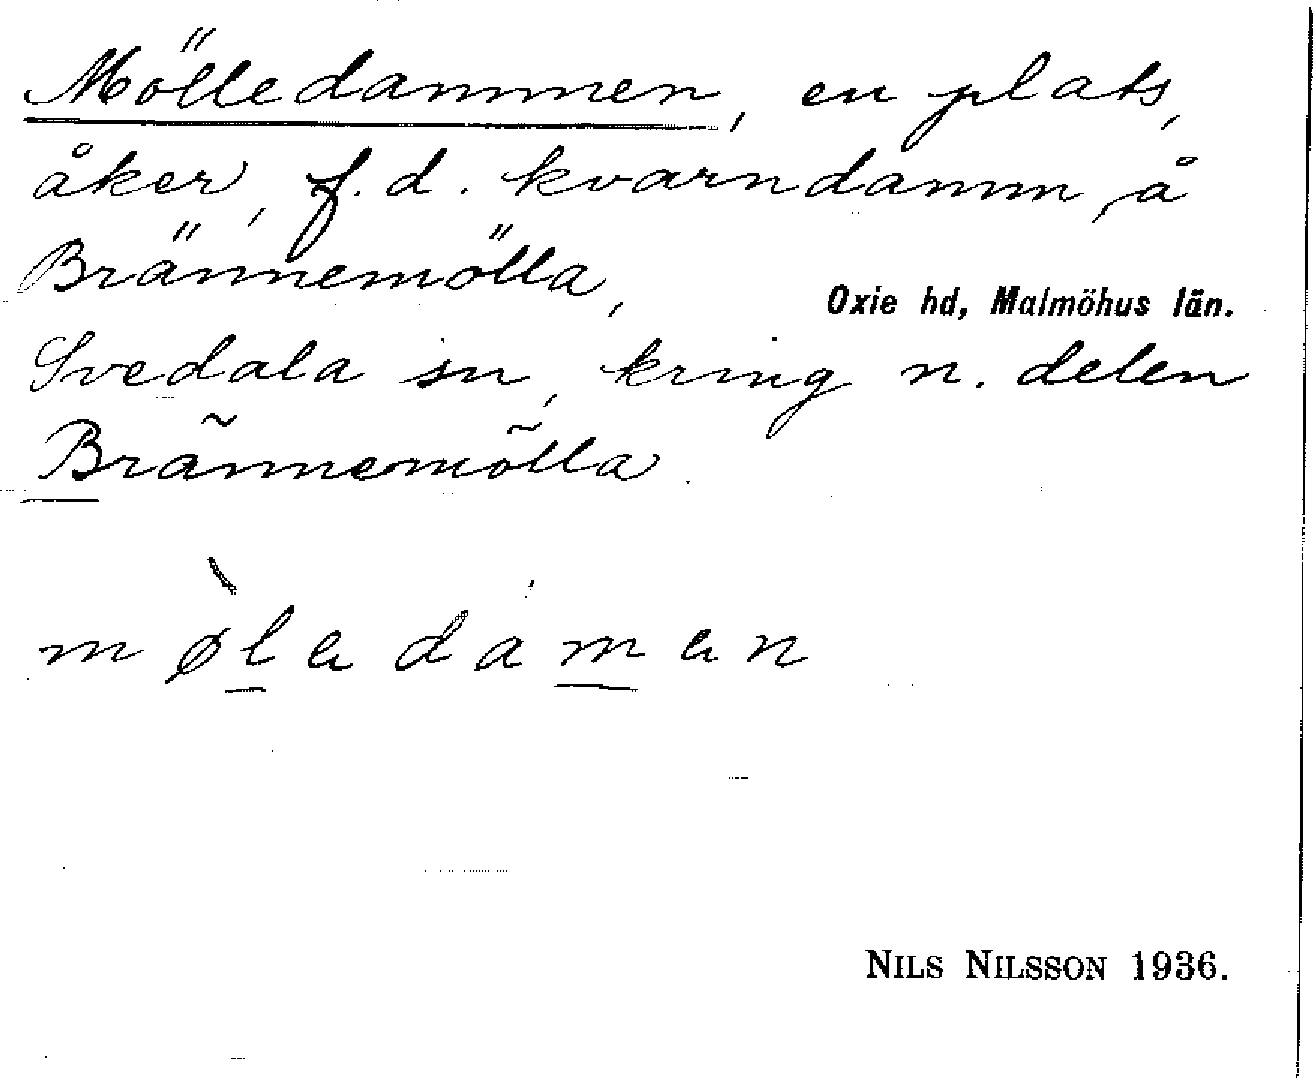 Mölledammen, en plats,
åker, f.d. kvarndamm, å
Brännemölla,
Oxie hd, Malmöhus län.
Svedala sn, kring n. delen
Brännemölla.
mø̀lədamən
NILS NILSSON 1936.